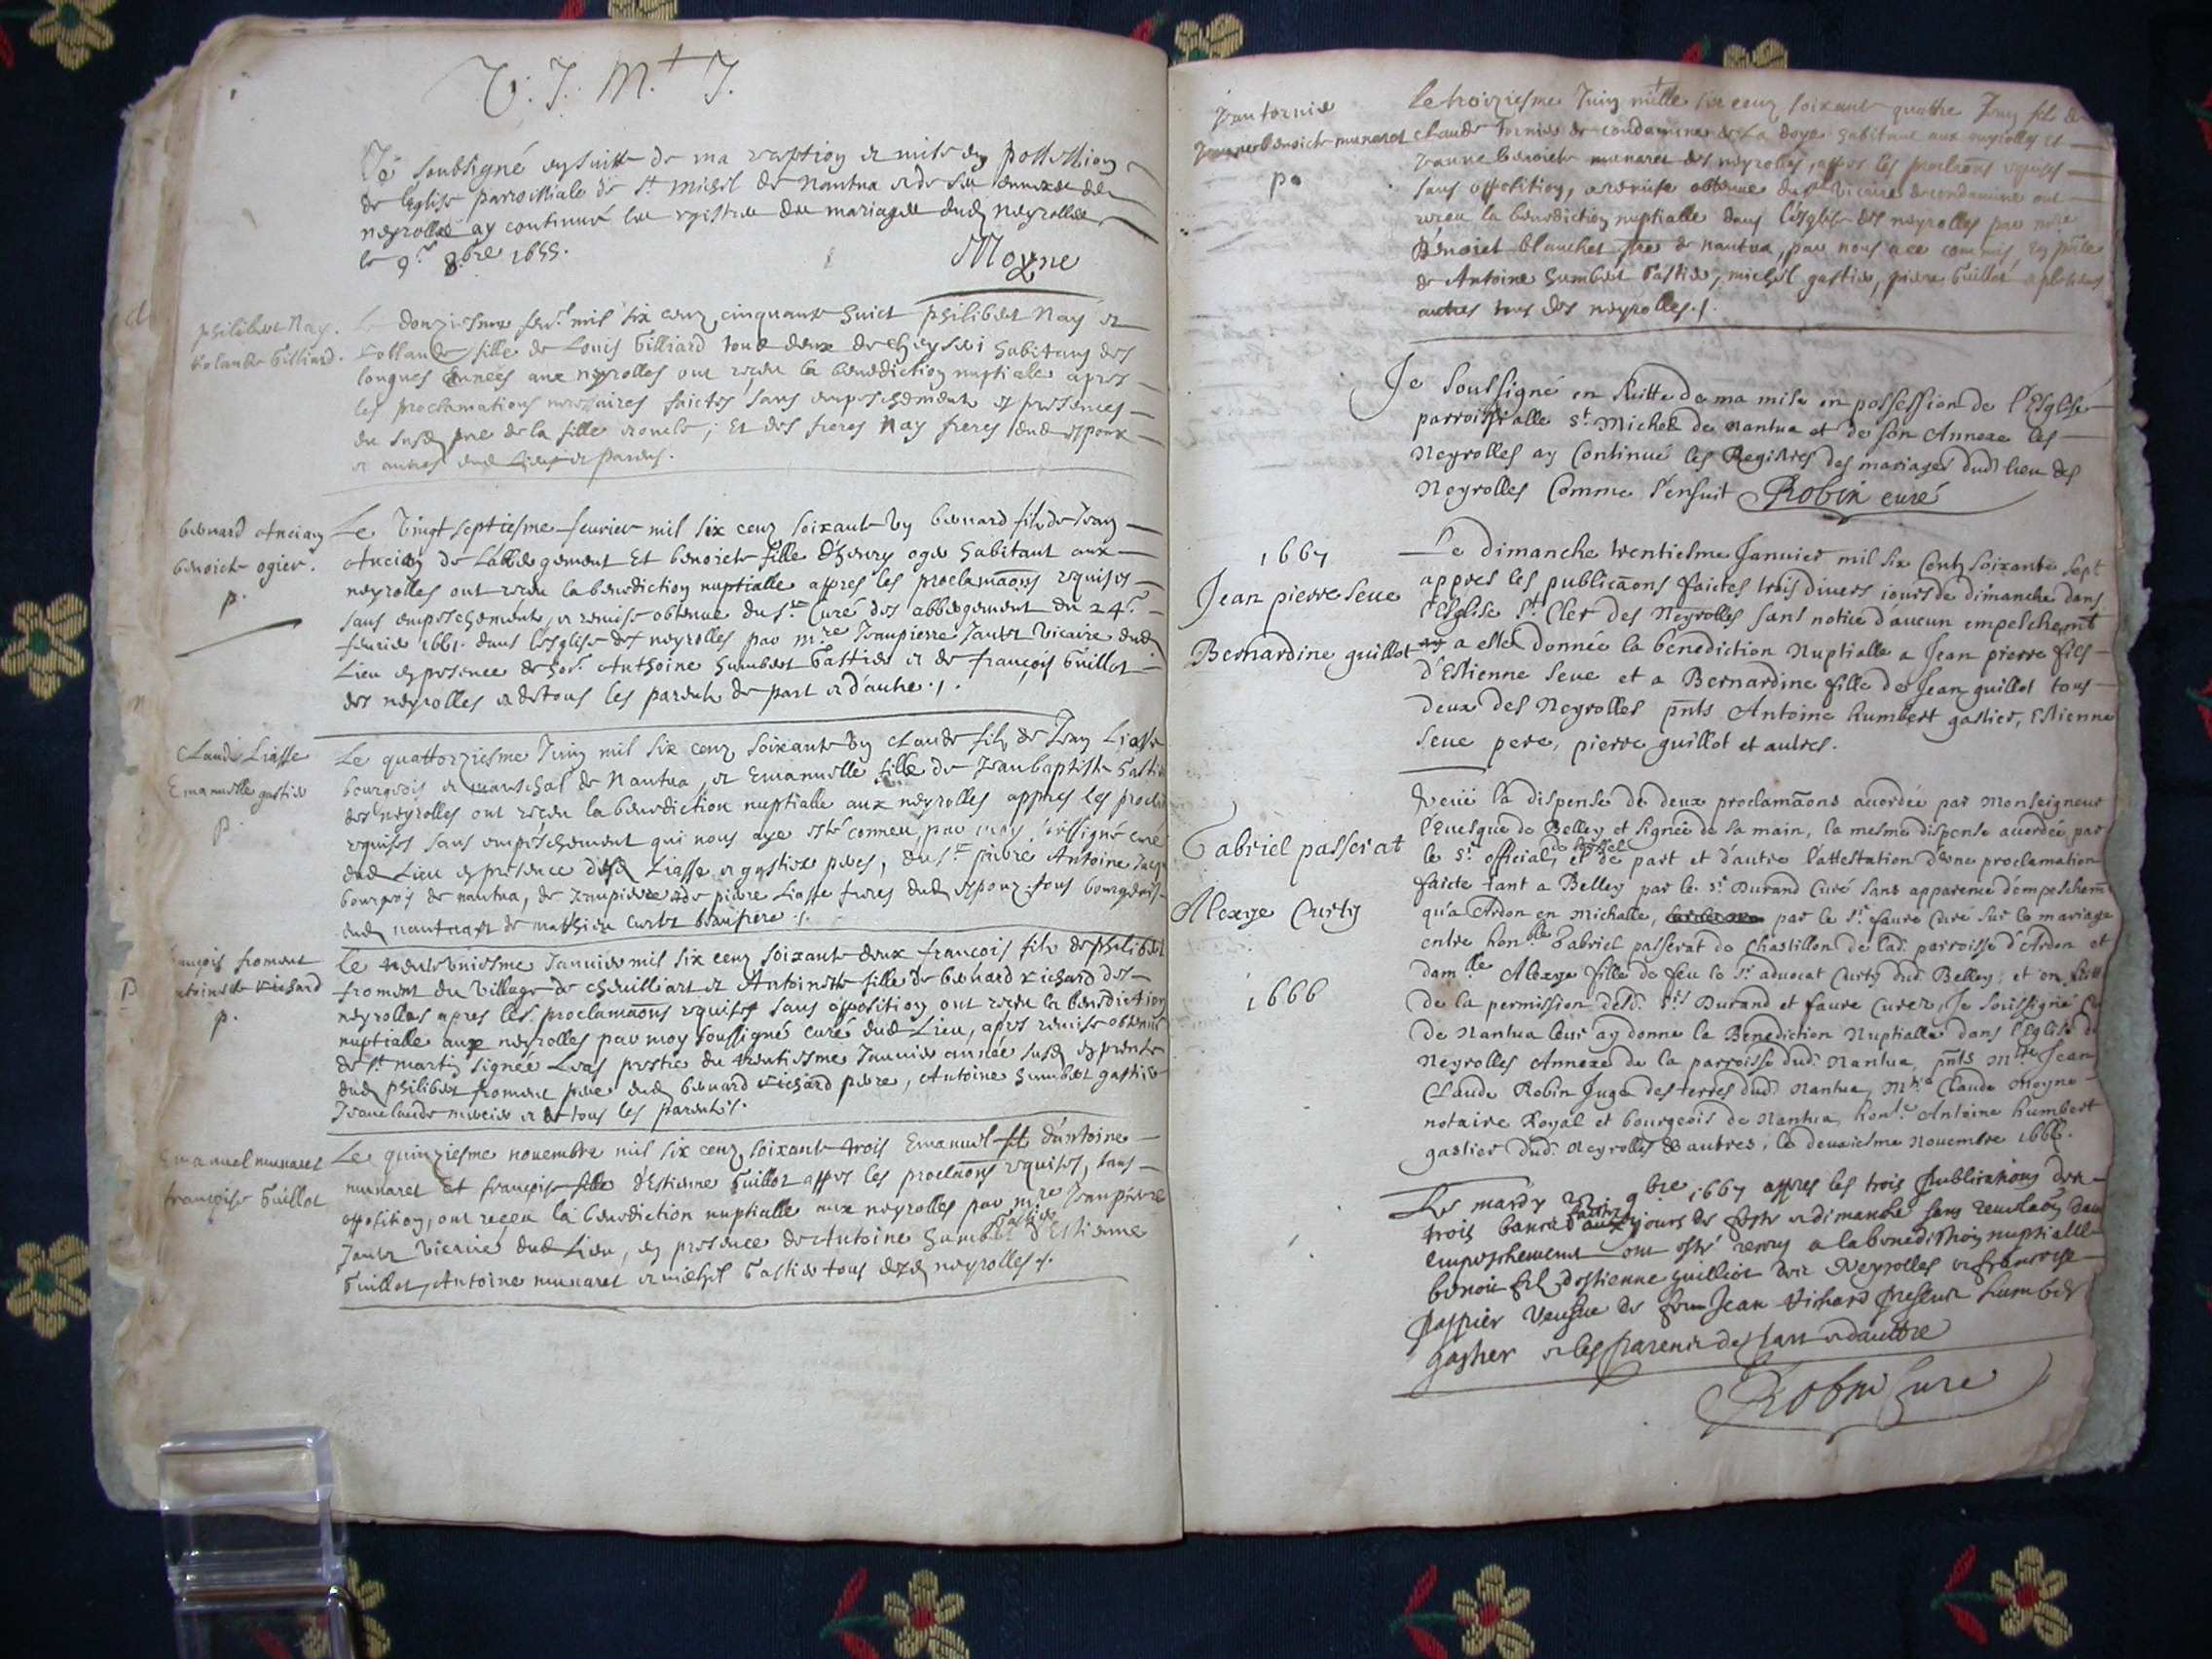 V. J. M. J.
Je soubsigné ensuitte de ma reception et mise en possession
de l'Eglise parroissiale de st Michel de Nantua et de son annexe des
neyrolles ay continué les registres des mariages dud neyrolles
le 9e 8bre 1655.
Moyne
philibert Nay.
Yolande Gilliard.
Le douziesme mil six cenz cinquante huict philibert Nay et
Yollande fille de Louis Gilliard tous deux de habitans des
longues années aux neyrolles ont receu la benediction nuptiale apres
les proclamations necessaires faictes sans empeschement et presences
du susd pere de la fille ; Et des freres Nay freres dud espoux
et autres parens.
bernard Ancian
benoicte ogier.
p.
Le vingt septiesme feurier mil six cenz soixante un bernard filz de Jean
Ancian de l'abbergement Et benoicte fille d'henry ogier habitant aux
neyrolles ont receu la benediction nuptialle apres les proclamaons requises
sans empeschement, et remise obtenue du sr Curé des abbergement du 24e
feurier 1661. dans l'esglise des neyrolles par mre Jeanpierre Jantet vicaire dud
Lieu en presence de hon. Anthoine humbert Gastier et de françois Guillot
des neyrolles et de tous les parents de part et d'autre ./.
Claude Liasse
Emanuelle gastier
p.
Le quattorziesme Juin mil six cenz soixante un Claude filz de Jean Liasse
bourgeois et mareschal de Nantua, et Emanuelle fille de Jeanbaptiste Gastier
des neyrolles ont receu la benediction nuptialle aux neyrolles appres les procla
requises sans empeschement qui nous aye esté conneu, par moy soussigné curé
dud Lieu en presence desd Liasse et gastier peres, du sr Antoine
bourgeois de nantua, de Jeanpierre et de pierre Liasse freres dud espoux tous bourgeois
dud nantua et de mathieu Curtet beaufrere ./.
françois froment
Antoinette Richard
p.
P
Le mil six cenz soixante deux françois filz de philibert
froment du village de cheuilliart et Antoinette fille de bernard Richard des
neyrolles apres les proclamaons requises sans opposition ont receu la benediction
nuptialle aux neyrolles par moy soussigné curé dud Lieu, apres remise obtenue
de st martin signée du trentiesme Januier année susd en presence
dud philibert froment pere dud bernard Richard pere, Antoine humbert gastier
Jeanclaude mercier et de tous les parentz.
Emanuel munaret
françoise Guillot
Le quinziesme nouembre mil six cenz soixante trois Emanuel filz d'antoine
munaret Et françoise fille d'Estienne Guillot appres les proclaons requises, sans
opposition, ont receu la benediction nuptialle aux neyrolles par mre Jeanpierre
Jantet vicaire dud Lieu, en presence de Antoine humbert Gastier d'Estienne
Guillot, Antoine munaret et michel Gastier tous desd neyrolles ./.
Jean tornier
Jeanne benoicte munaret
po
Le troiziesme Juin mille six cenz soixante quattre Jean filz de
Claude tornier de condamine de La doye habitant aux neyrolles et
Jeanne benoicte munaret des neyrolles, appres les proclaons requises
sans opposition, et remise obtenue du sr vicaire de condamine ont
receu la benediction nuptialle dans l'esglise des neyrolles par mre
Benoict blanchet pre de nantua, par nous a ce commis, en pnce
de Antoine humbert Gastier, michel gastier, pierre Guillot et plusieurs
autres tous des neyrolles ./.
Je soussigné en suitte de ma mise en possession de l'Esglise
parroissialle st Michel de Nantua et de son Annexe les
Neyrolles ay Continué les Registres des mariages dud lieu des
Neyrolles Comme s'ensuit Robin curé
1667
Jean pierre Seue
Bernardine guillot
Le dimanche trentiesme Januier mil six Centz soixante sept
appres les publicaons faictes trois diuers iours de dimanche dans
l'Esglise st Cler des Neyrolles sans notice d'aucun empeschemt
a esté donnée la benediction Nuptialle a Jean pierre fils
d'Estienne Seue et a Bernardine fille de Jean guillot tous
deux des Neyrolles pnts Antoine humbert gastier, Estienne
Seue pere, pierre guillot et autres.
Gabriel passerat
Alexye Curty
1666
Veüe la dispense de deux proclamaons accordée par Monseigneur
l'Euesque de Belley et signée de sa main, la mesme dispense accordée par
le sr official, et de part et d'autre l'attestation d'une proclamation
faicte tant a Belley par le sr Durand Curé sans apparence d'empeschemt
qu'a Ardon en Michaille, par le sr faure Curé sur le mariage
entre honble Gabriel passerat de Chastillon de lad. parroisse d'Ardon et
damlle Alexye fille de feu le sr aduocat Curty dud Belley; et en suitte
de la permission desd. srs Durand et faure Curez, Je soussigné Cu
de Nantua leur ay donné la Benediction Nuptialle dans l'Eglise de
Neyrolles Annexe de la parroisse dud. Nantua, pnts Mre Jean
Claude Robin Juge des terres dud Nantua, Mre Claude Moyne
notaire Royal et bourgeois de Nantua, hon. Antoine humbert
gastier dud. Neyrolles & autres, le deuxiesme Nouembre 1666.
Le mardy 9bre 1667 appres les trois publications des
trois bancs faictes jours de feste et dimanche sans reuelaon d'au
empeschement ont esté receus a la benediction nuptialle
benoit fil d'estienne guilliot des Neyrolles et francoise
passier veufue de feu Jean Richard presents humbert
gastier et les parents de part et daultre
Robin Curé